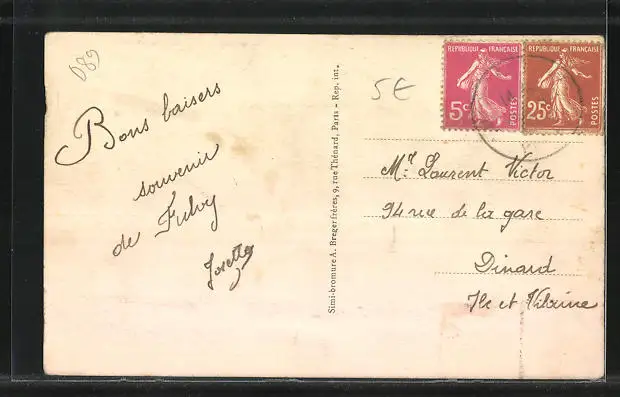 D89
Bons baisers
souvenir
de Fulvy
Josette
Simi-bromure A. Breger frères, 9, rue Thénard, Paris - Rep. int.
5€
REPUBLIQUE FRANÇAISE
5c
POSTES
REPUBLIQUE FRANÇAISE
25c
POSTES
Mr Laurent Victor
94 rue de la gare
Dinard
Ile et Vilaine